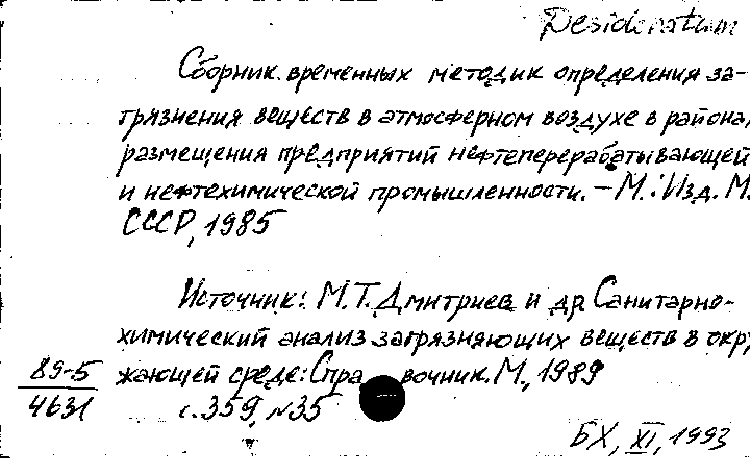 Desideratum
Сборник временных методик определения за-
грязнения веществ в атмосферном воздухе в района
размещения предприятий нефтеперерабатывающей
и нефтехимической промышленности. – М.: Изд. М.
СССР, 1985
Источник: М.Т. Дмитриев и др. Санитарно-
химический анализ загрязняющих веществ в окру
жающей среде: Спра вочник. М., 1989
с. 359, №35
89-5
4631
БХ, XI, 1993